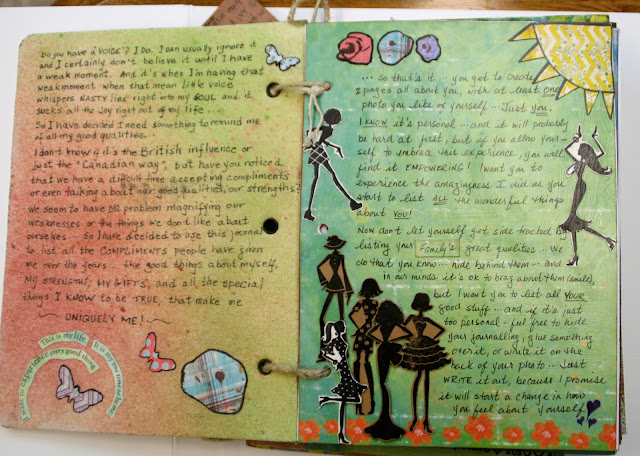 Do you have a "VOICE"? I DO. I can usually ignore it
and I certainly don't believe it until I have
a weak moment. And it's when I'm having that
weak moment when that mean little voice
whispers NASTY lies right into my SOUL and it
sucks all the joy right out of my life...
So I have decided I need something to remind me
of all my good qualities.
I don't know if it's the British influence or
just the "Canadian way", but have you noticed
that we have a difficult time accepting compliments
or even talking about our good qualities, our strengths?
We seem to have NO problem magnifying our
weaknesses or the things we don't like about
ourselves... So I have decided to use this journal
to list all the COMPLIMENTS people have given
me over the years... the good things about myself,
MY STRENGTHS, MY GIFTS, and all the special
things I KNOW to be TRUE, that make me
~ UNIQUELY ME! ~
This is my life
It is my one time to be me
I want to experience every good thing
... So that's it... you get to create
2 pages all about you, with at least one
photo you like of yourself... Just you.
I KNOW it's personal... and it will probably
be hard at first, but if you allow your-
self to embrace this experience, you will
find it EMPOWERING! I want you to
experience the amazingness I did as you
start to list ALL the wonderful things
about YOU!
Now don't let yourself get side tracked by
listing your Family's great qualities... We
do that you know... hide behind them... and
in our minds it's ok to brag about them (smile),
but I want you to list all YOUR
good stuff... and if it's just
too personal - feel free to hide
your journalling, glue something
over it, or write it on the
back of your photo... Just
WRITE it out, because I promise
it will start a change in how
you feel about yourself